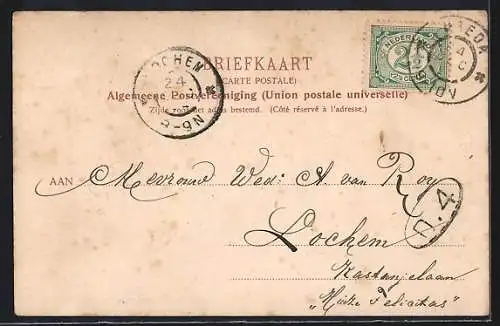 BRIEFKAART
(CARTE POSTALE)
Algemeene Postvereeniging (Union postale universelle)
Zijde voor het adres bestemd. (Côté réservé à l'adresse.)
NEDERLAND
2½
LOCHEM
24
6-9N
4
AAN Mevrouw Wed: A. van Roy
Lochem
Kastanjelaan
"Huize Felicitas"
n.4